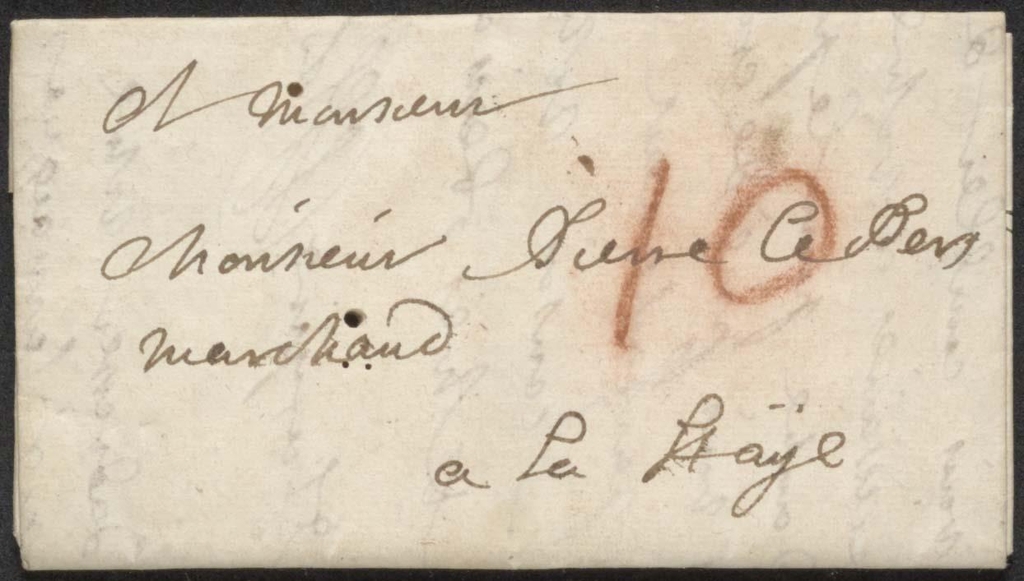 A Monsieur
Monsieur Pierre Ce Pers
marchand
a La Haÿe
10